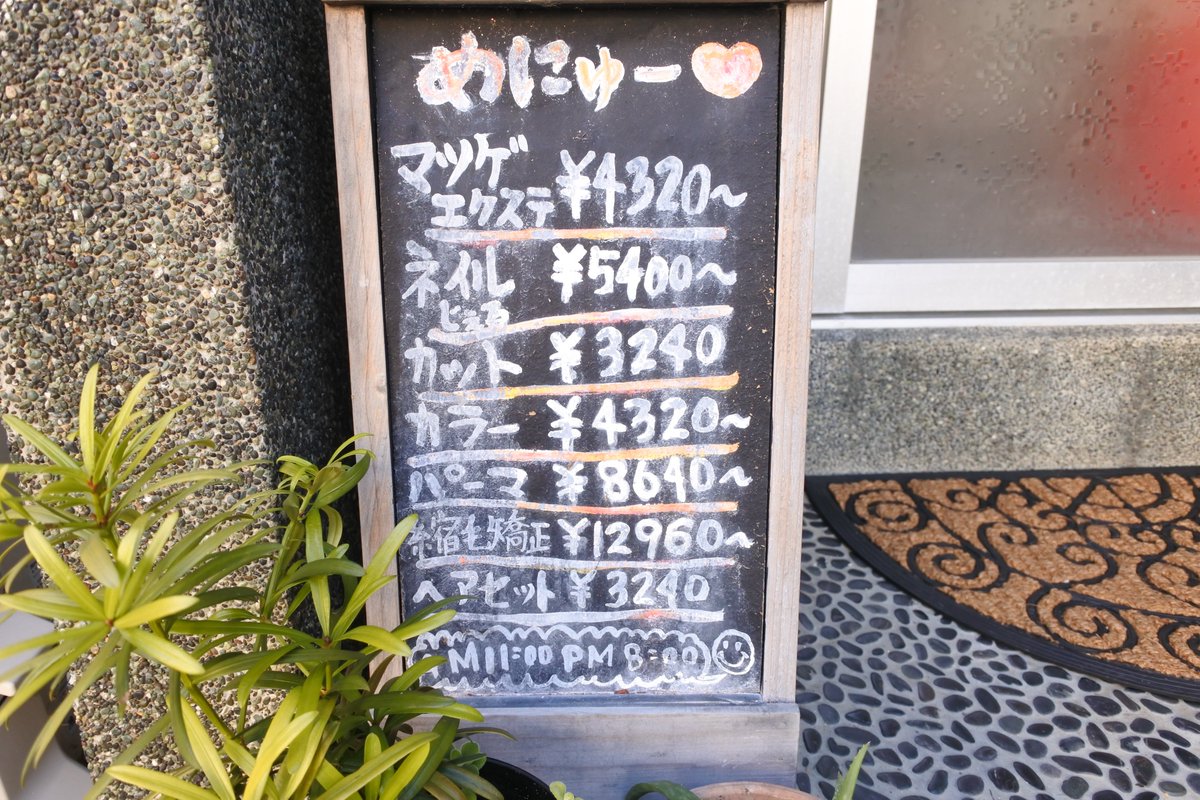 めにゅー
マツゲ
エクステ ¥4320~
ネイル ¥5400~
じぇる
カット ¥3240
カラー ¥4320~
パーマ ¥8640~
縮毛矯正 ¥12960~
ヘアセット ¥3240
AM11:00 PM 8:00